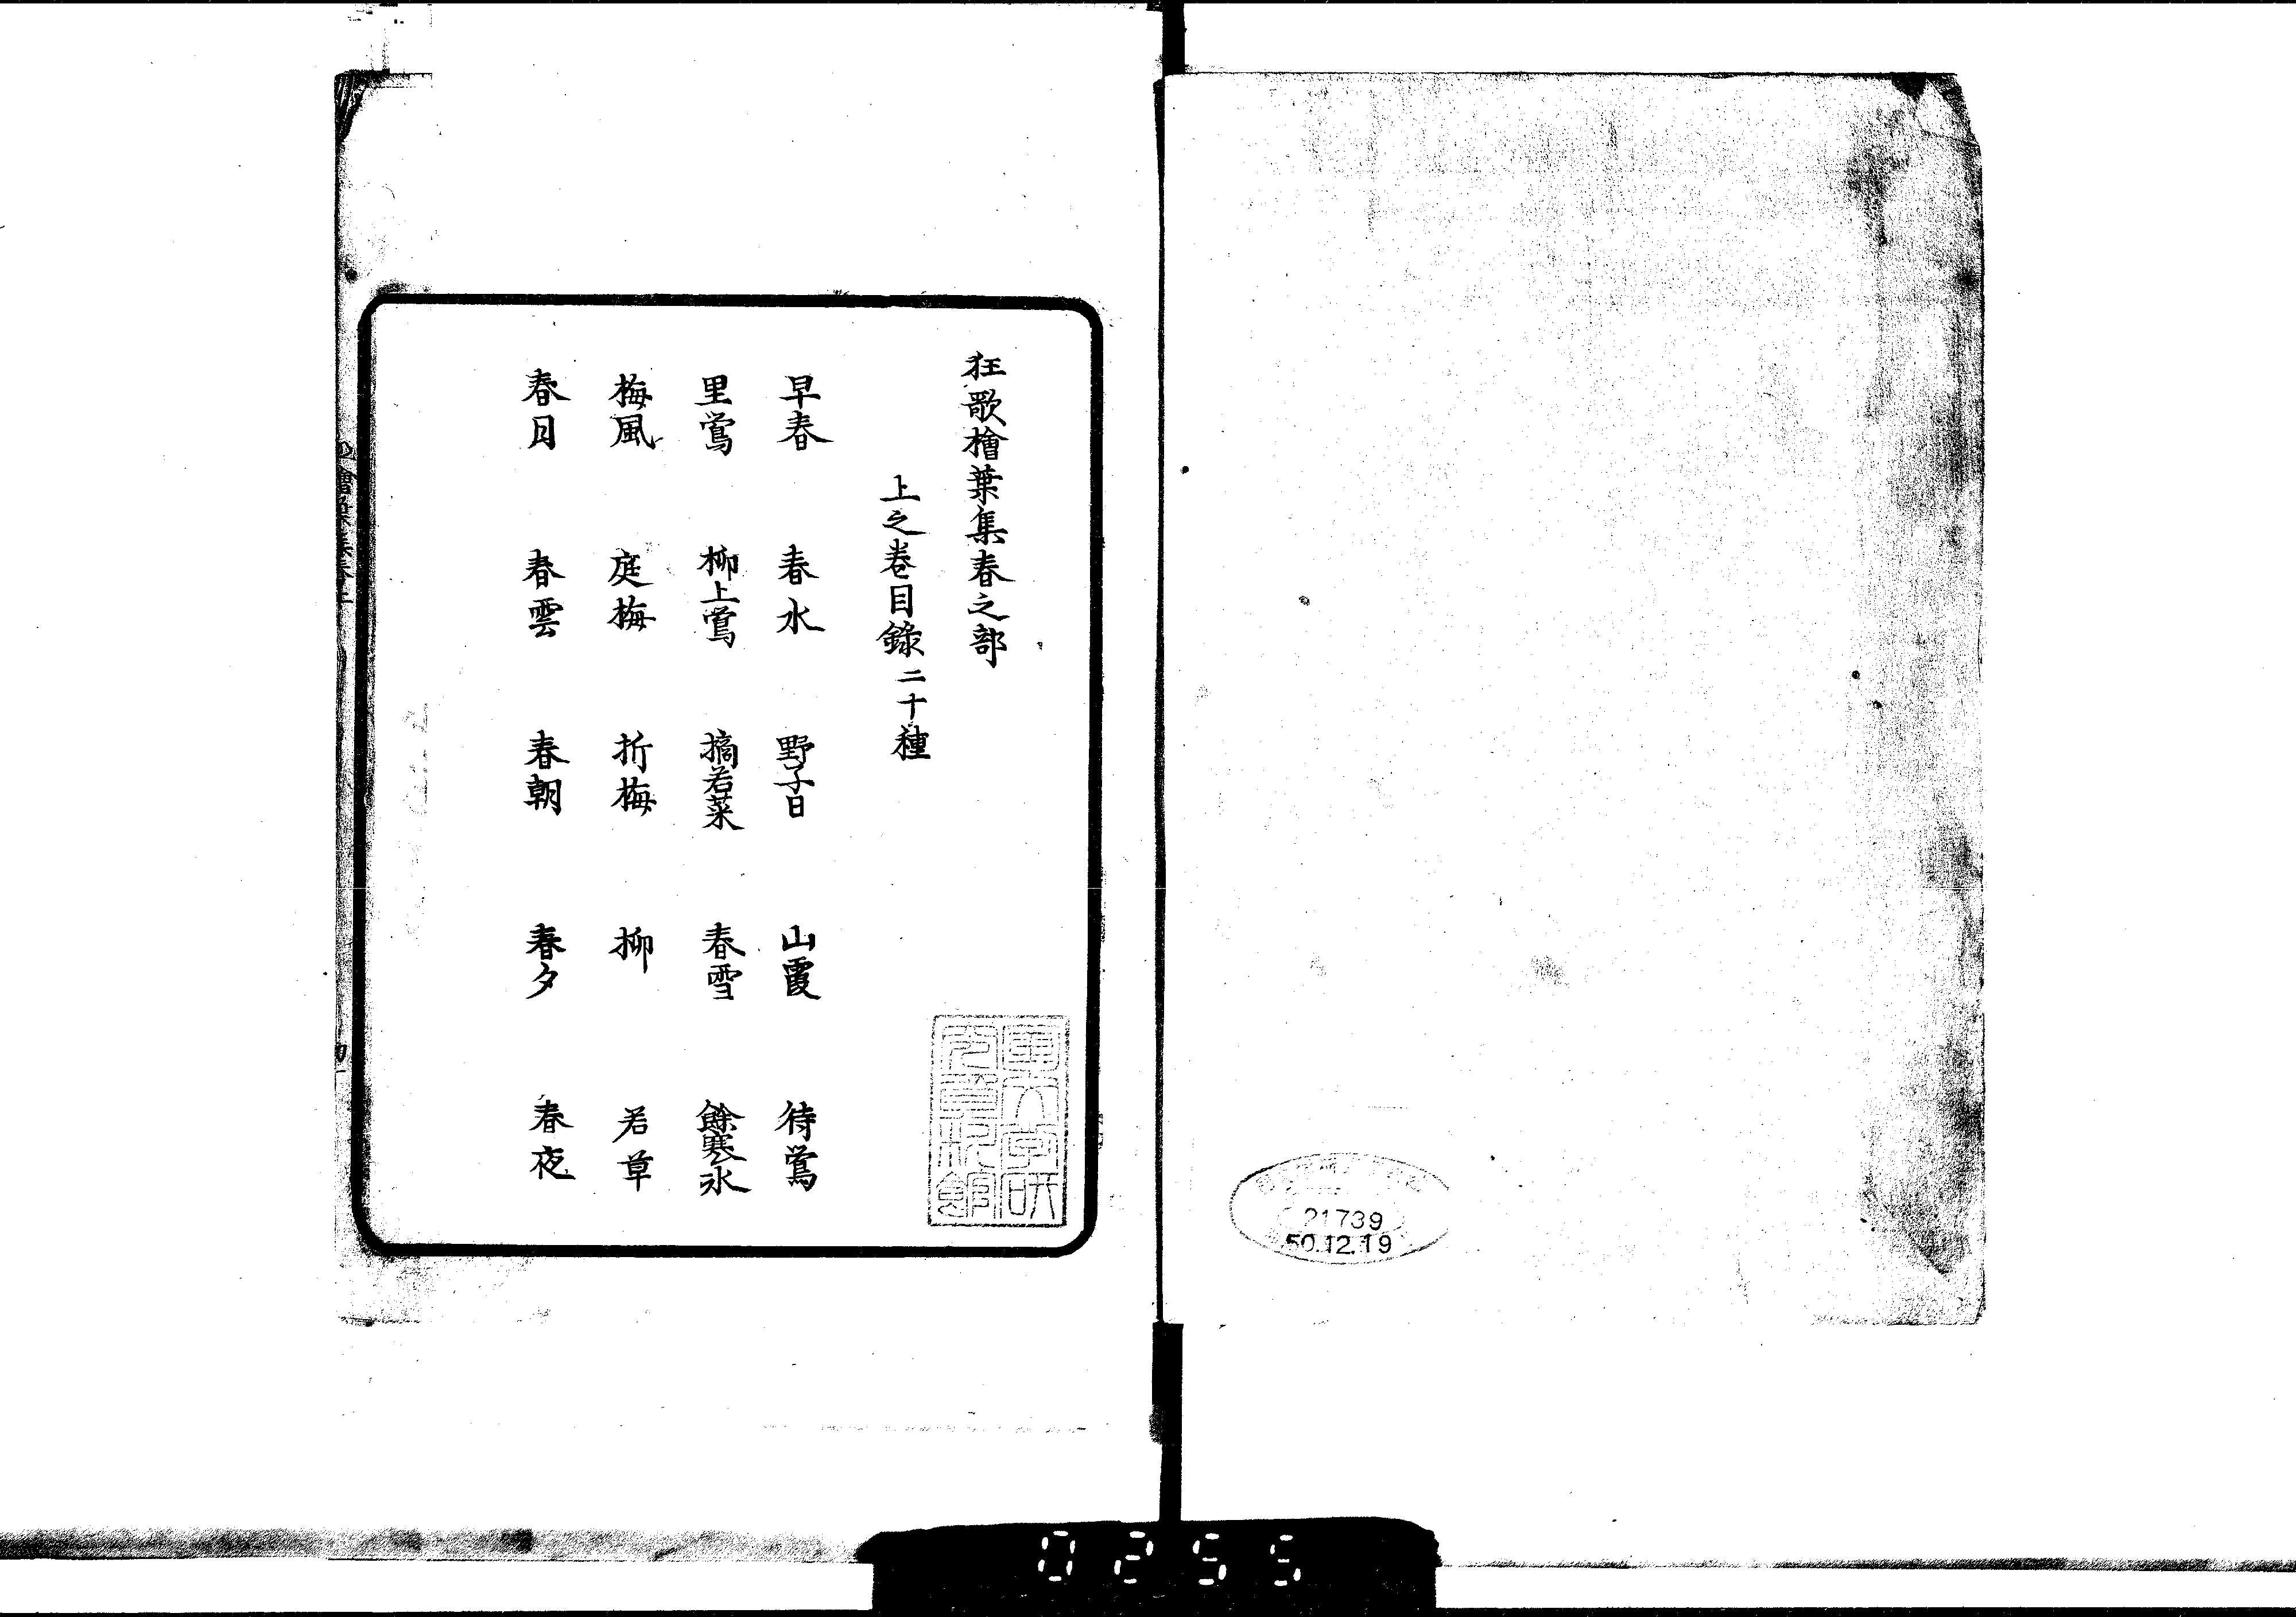 狂歌檜葉集春之部
上之巻目録 二十種
早春 春水 野子日 山霞 待鶯
里鶯 柳上鶯 摘若菜 春雪 餘寒氷
梅風 庭梅 折梅 柳 若草
春月 春雲 春朝 春夕 春夜
21739
50.12.19
0255